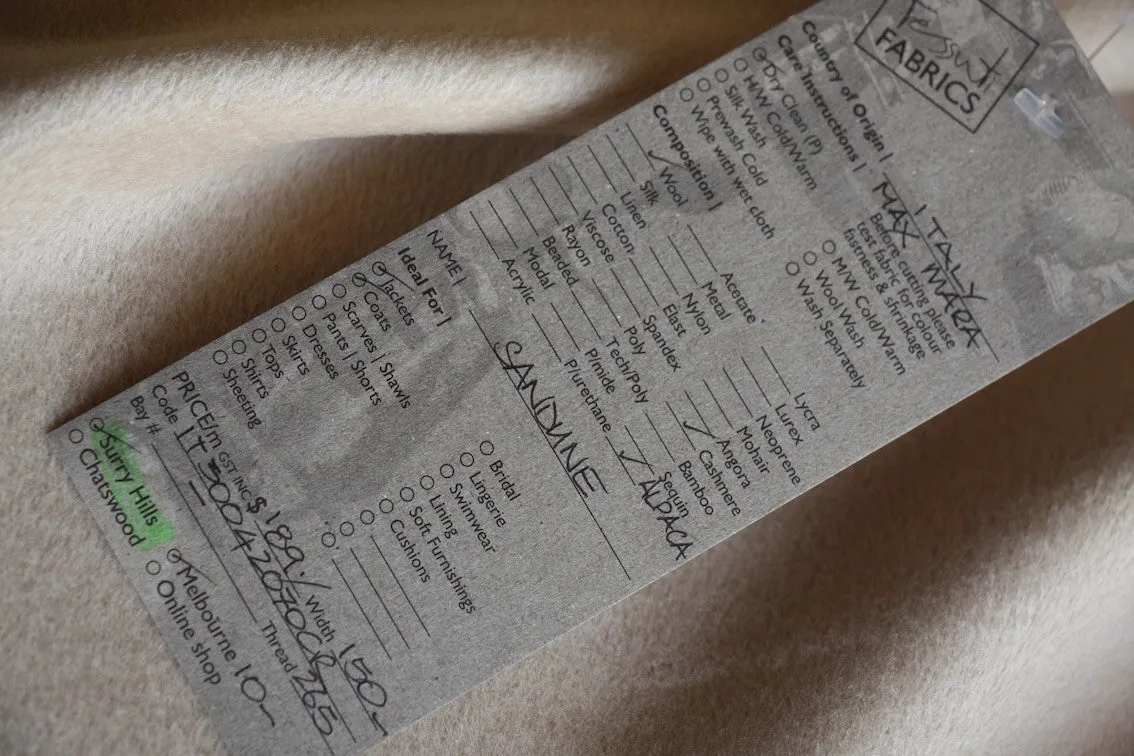 Tessuti
FABRICS
Country of Origin | ITALY
Care Instructions | MAX MARA
Dry Clean (P)
H/W Cold/Warm
Silk Wash
Prewash Cold
Wipe with wet cloth
Before cutting please
test fabric for colour
fastness & shrinkage
M/W Cold/Warm
Wool Wash
Wash Separately
Composition |
✓ Wool
Silk
Linen
Cotton
Viscose
Rayon
Beaded
Modal
Acrylic
Acetate
Metal
Nylon
Elast
Spandex
Poly
Tech/Poly
P/mide
P/urethane
Lycra
Lurex
Neoprene
Mohair
Angora
✓ Cashmere
Bamboo
Sequin
✓ ALPACA
NAME |
Ideal For |
Jackets
Coats
Scarves | Shawls
Pants | Shorts
Dresses
Skirts
Tops
Shirts
Sheeting
Bridal
Lingerie
Swimwear
Lining
Soft Furnishings
Cushions
PRICE/m GST INC $189./ Width 150
Code
Bay #
Thread 265
Surry Hills
Chatswood
Melbourne 10
Online shop